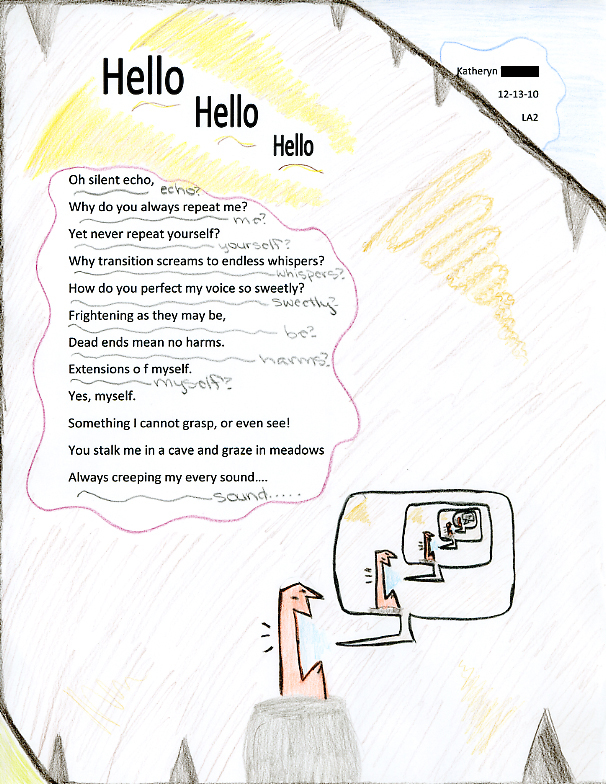 Hello
Hello
Hello
Katheryn
12-13-10
LA2
Oh silent echo,
echo?
Why do you always repeat me?
me?
Yet never repeat yourself?
yourself?
Why transition screams to endless whispers?
whispers?
How do you perfect my voice so sweetly?
sweetly?
Frightening as they may be,
be?
Dead ends mean no harms.
harms?
Extensions o f myself.
myself?
Yes, myself.
Something I cannot grasp, or even see!
You stalk me in a cave and graze in meadows
Always creeping my every sound....
sound.....